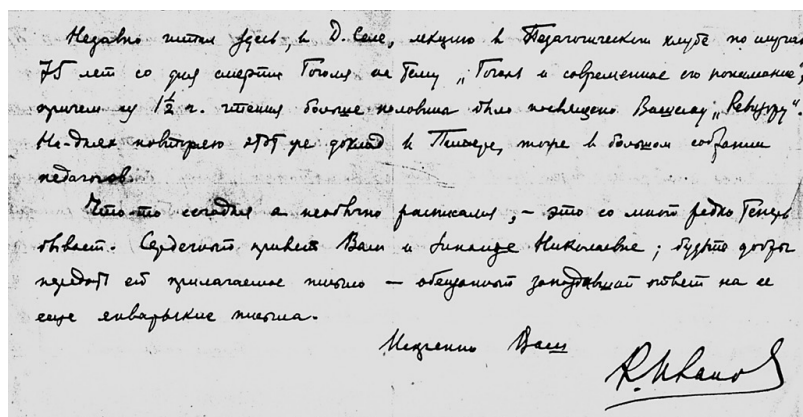 Недавно читал здесь, в Д. Селе, лекцию в Педагогическом клубе по случаю
75 лет со дня смерти Гоголя на тему „Гоголь и современное его понимание",
причем из 1½ ч. чтения больше половины было посвящено Вашему „Ревизору".
На-днях повторяю этот же доклад в Питере, тоже в большом собрании
педагогов.
Что-то сегодня я необычно расписался, – это со мной редко теперь
бывает. Сердечный привет Вам и Зинаиде Николаевне; будьте добры
передать ей прилагаемое письмо — обещанный запоздавший ответ на ее
еще январские письма.
Искренно Ваш
Р. Иванов